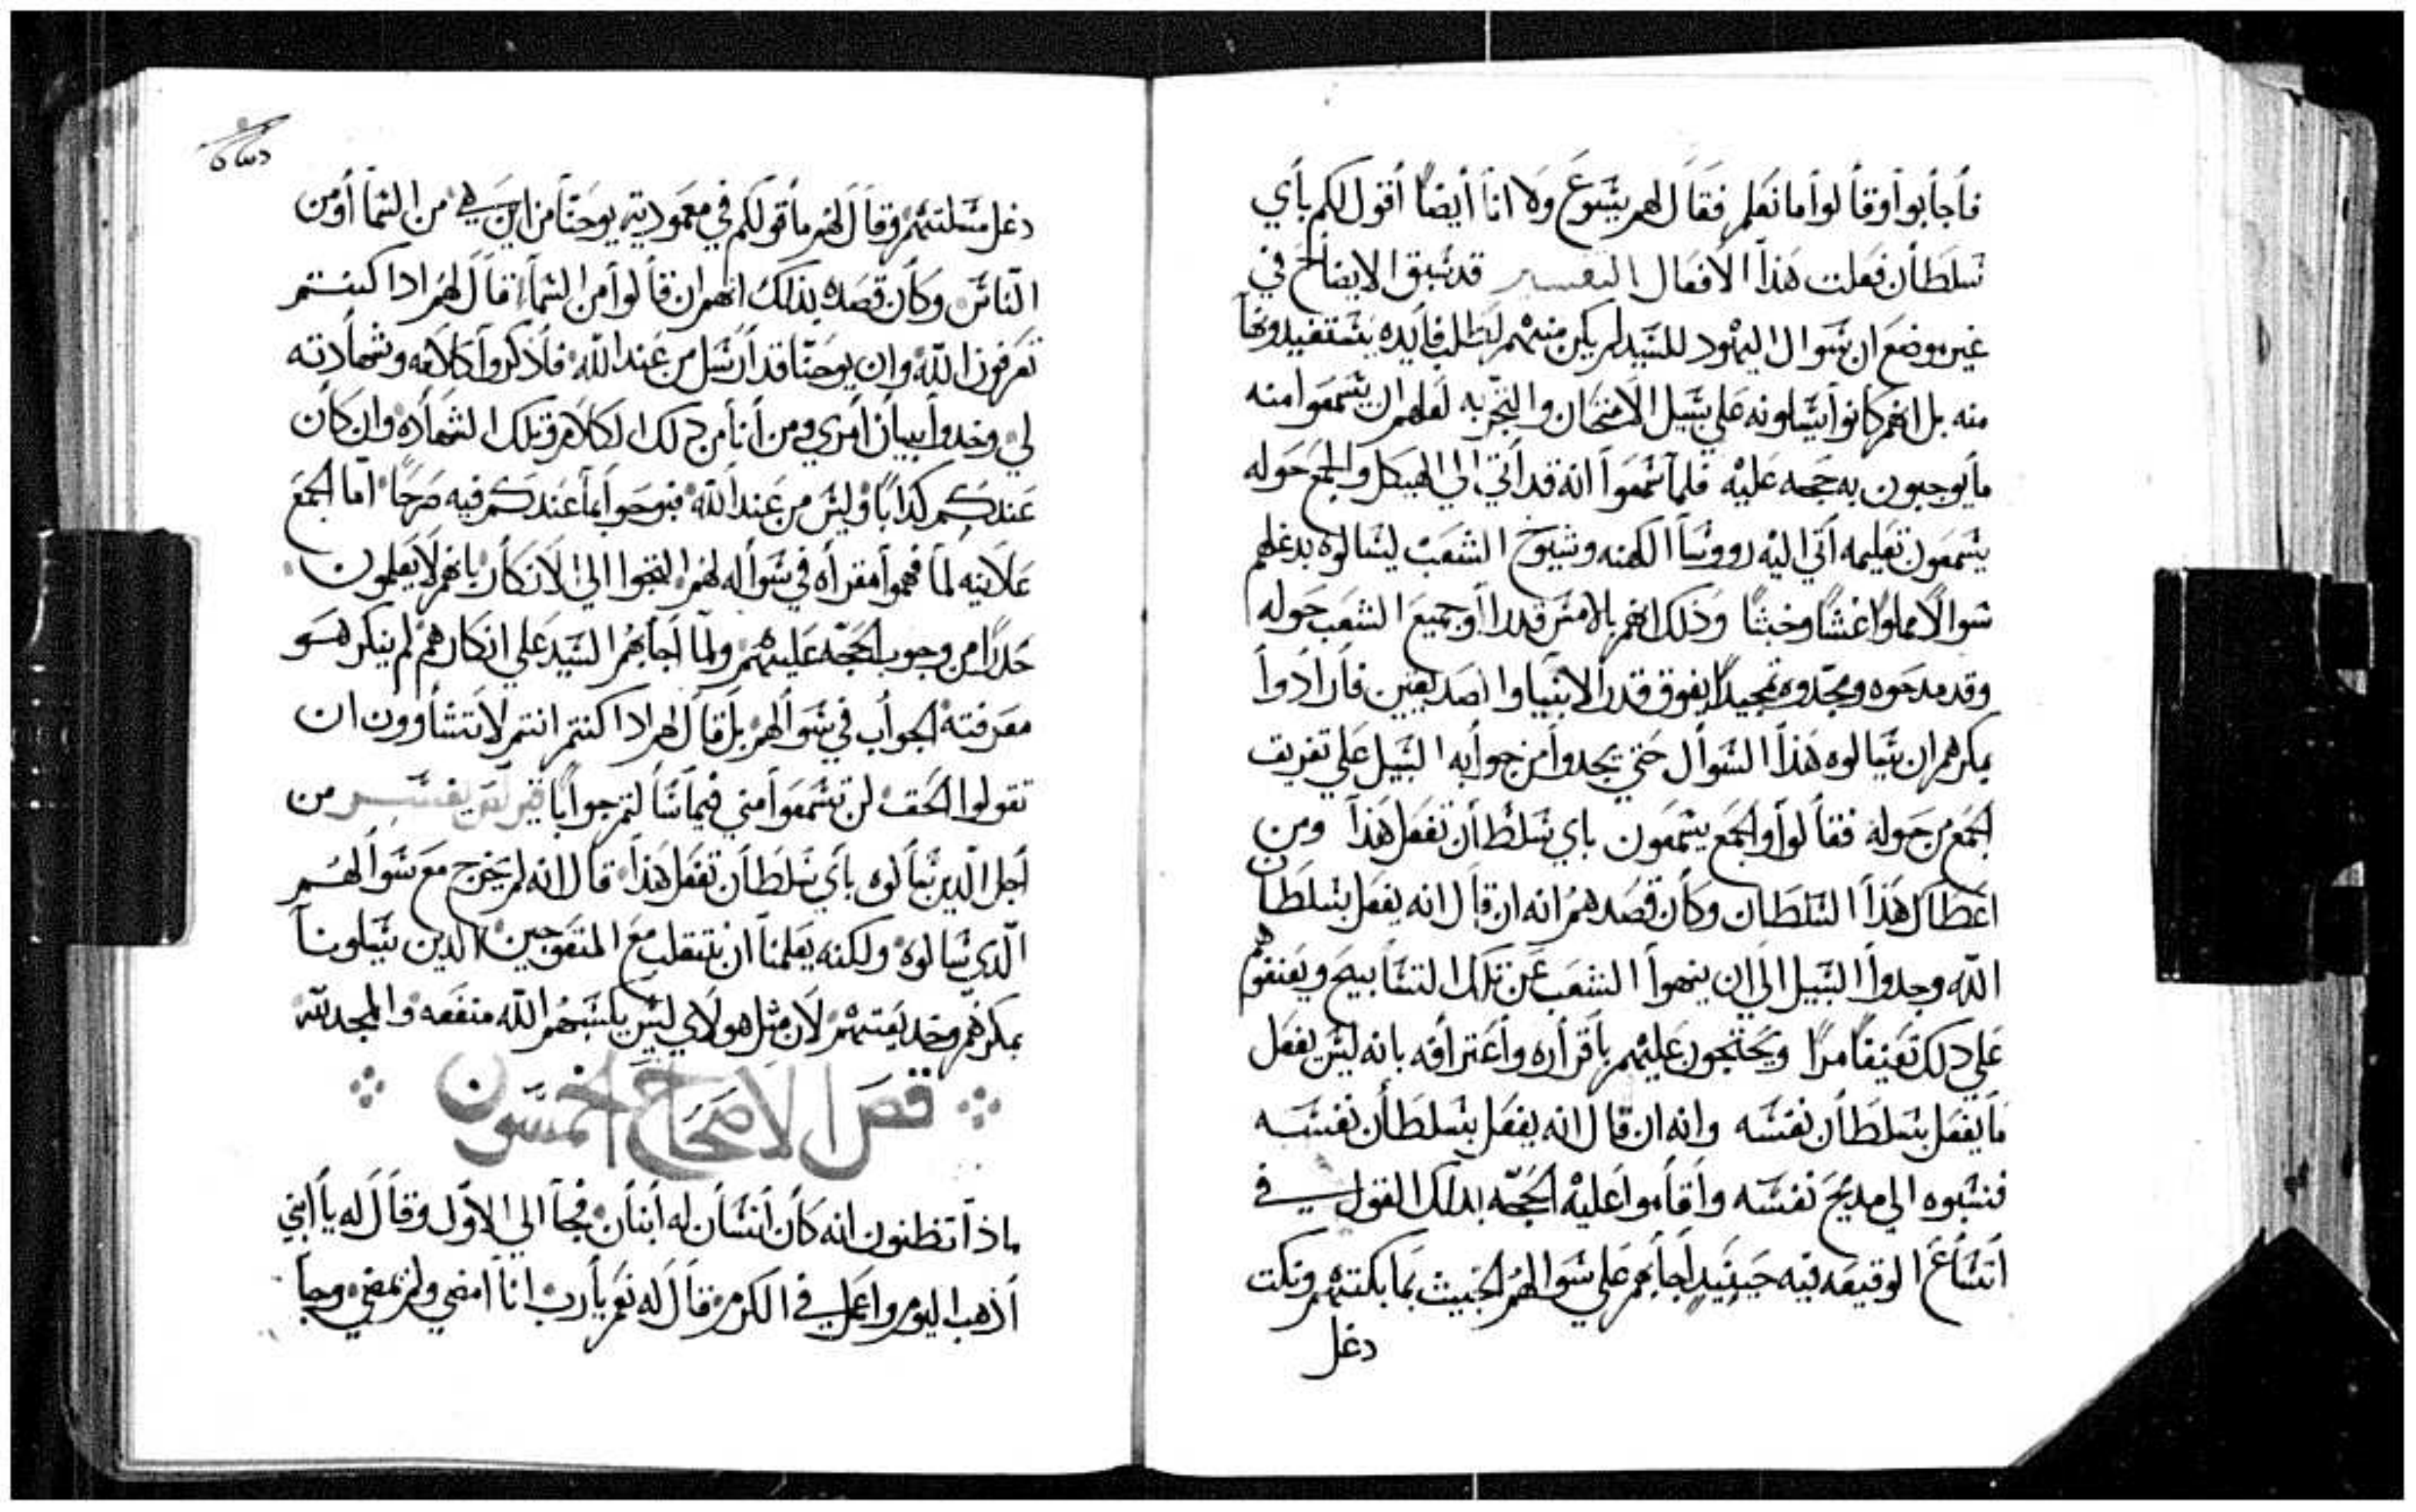 فأجابوا وقالوا ما نعلم فقال لهم يسوع ولا انا أيضًا أقول لكم بأي
سلطان فعلت هذا الأفعال التفسير قد سبق الايضاح في
غير موضع ان سوال اليهود للسيد لم يكن منهم لطلب فايده يستفيدونها
منه بل انهم كانوا يسلونه علي سبيل الامتحان والتجربه لعلهم ان يسمعوا منه
ما يوجبون به حجه عليه فلما سمعوا انه قد أتي الي الهيكل والجمع حوله
يسمعون تعليمه أتي اليه رووسا الكهنه وشيوخ الشعب ليسالوه بدغلهم
سوالًا مملوًا غشًا وخبثًا وذلك انهم بالامس قد راوا جميع الشعب حوله
وقد مدحوه ومجدوه تمجيدًا يفوق قدر الانبيا والصديقين فأرادوا
بمكرهم ان يسالوه هذا السوال حتي يجدوا من جوابه السبيل علي تفريق
الجمع من حوله فقالوا والجمع يسمعون باي سلطان تفعل هذا ومن
اعطاك هذا السلطان وكان قصدهم انه ان قال انه يفعل بسلطان
الله وجدوا السبيل الي ان ينهوا الشعب عن تلك التسابيح ويعنفوهم
علي دلك تعنيفًا مرًا ويحتجون عليهم باقراره وأعترافه بانه ليس يفعل
ما يفعل بسلطان نفسه وانه ان قال انه يفعل بسلطان نفسه
فنسبوه الي مديح نفسه وأقاموا عليه الحجه بدلك القول في
أتساع الوقيعه فيه حينيدٍ أجابهم علي سوالهم الخبيث بما بكتهم ونكت
دغل
دغل مسلتهم وقال لهم ما قولكم في معموديته يوحنا من اين هي من السما أو من
الناس وكان قصده بذلك انهم ان قالوا من السما قال لهم ادا كنتم
تعرفون الله وان يوحنا قد أرسل من عند الله فأذكروا كلامه وشهادته
لي وخدوا بيان أمري ومن أنا من دلك الكلام وتلك الشهاده وان كان
عندكم كدابًا وليس من عند الله فبوحوا بما عندكم فيه صرحًا اما الجمع
علانيه لما فهموا مغزاه في سواله لهم التجوا الي الانكار بانهم لا يعلمون
حدرًا من وجوب الحجه عليهم ولما أجابهم السيد علي انكارهم لم ينكر هو
معرفته الجواب في سوالهم بل قال لهم ادا كنتم انتم لا تتساوون ان
تقولوا الحق لن تسمعوا مني فيما سألتم جوابًا تفسير من
أجل الدين سالوه باي سلطان تفعل هذا قال انه لم يخرج مع سوالهم
الدي سالوه ولكنه يعلمنا ان نتقلب مع المتعوجين الدين يسلونا
بمكرهم وخديعتهم لان مثل هولاي ليس يكسبهم الله منفعه والمجد لله
قصر الاصحاح الخمسون
ماذا تظنون انه كان أنسان له أبنان فجا الي الاول وقال له يا أبني
أذهب اليوم واعمل في الكرم فقال له نعم يا رب انا امضي ولم يمضي وجا